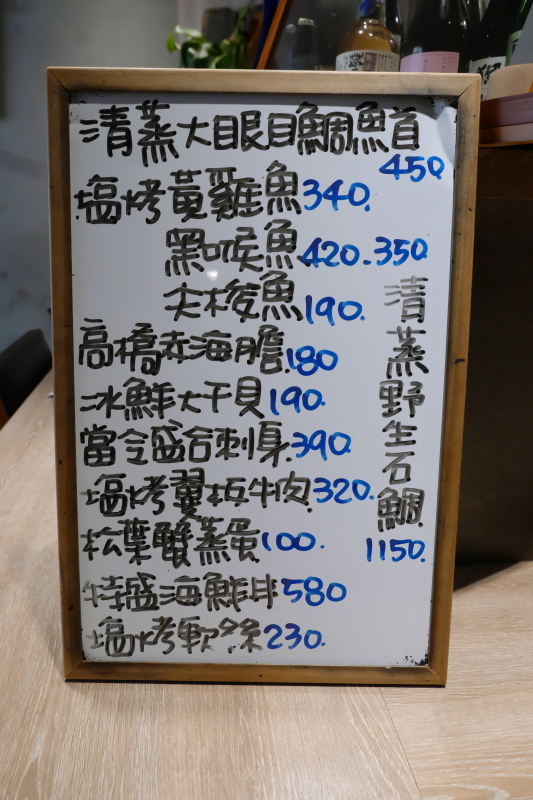 清蒸大眼目鯛魚首
450
塩烤黃雞魚340.
黑喉魚420.350
尖梭魚190.
高橋赤海膽180
冰鮮大干貝190.
當令盛合刺身390
塩烤翼板牛肉320.
松葉蟹蒸蛋100.
特盛海鮮丼580
塩烤軟絲230.
清蒸野生石鯛
1150.